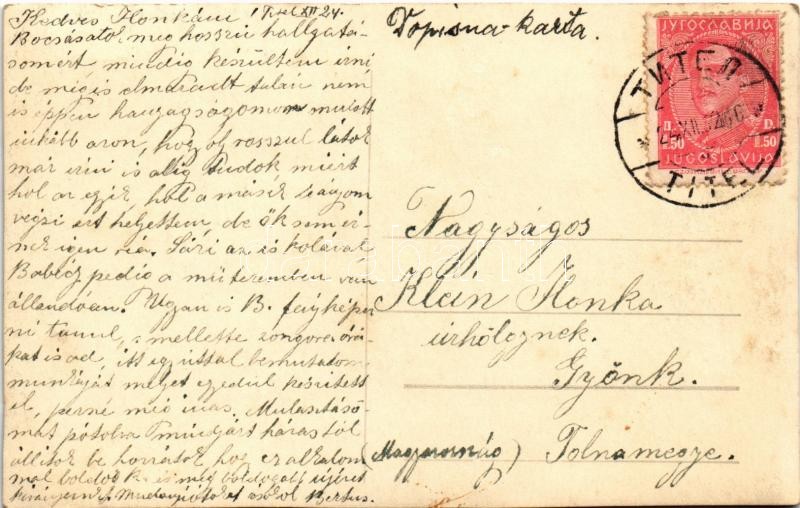 Kedves Ilonkám! Titel XII 24.
Bocsásatok meg hosszú hallgatá-
somért mindig készültem írni
de mégis elmaradt talán nem
is éppen hanyagságomon mulott
inkább azon, hogy oly rosszul látok
már írni is alig tudok miért
hol az egyik, hol a másik leányom
végzi ezt helyettem, de ők sem ér-
nek igen rá. Sári az iskolával
Babécz pedig a műteremben van
állandóan. Ugyan is B. fényképez-
ni tanul, s mellette zongora órá-
kat is ad, itt egyúttal bemutatom
munkáját melyet egyedül készített
el, persze még inas. Mulasztáso-
mat pótolva mindjárt hárastól
állitok be hozzátok hogy ez alkalom-
mal boldog K. és még boldogabb újévet
kivánjunk Mindanyiótokat csókol Bertus.
Dopisna-karta.
ЈУГОСЛАВИЈА
ТИТЕЛ
Д. D.
1.50 1.50
JUGOSLAVIJA
TITEL
Nagyságos
Klein Ilonka
úrhölgynek.
Gyönk.
(Magyarország) Tolnamegye.